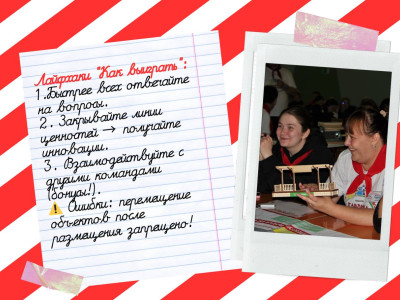 Лайфхаки "Как выиграть":
1. Быстрее всех отвечайте
на вопросы.
2. Закрывайте линии
ценностей → получайте
инновации.
3. Взаимодействуйте с
другими командами
(бонусы!).
⚠️ Ошибки: перемещение
объектов после
размещения запрещено!